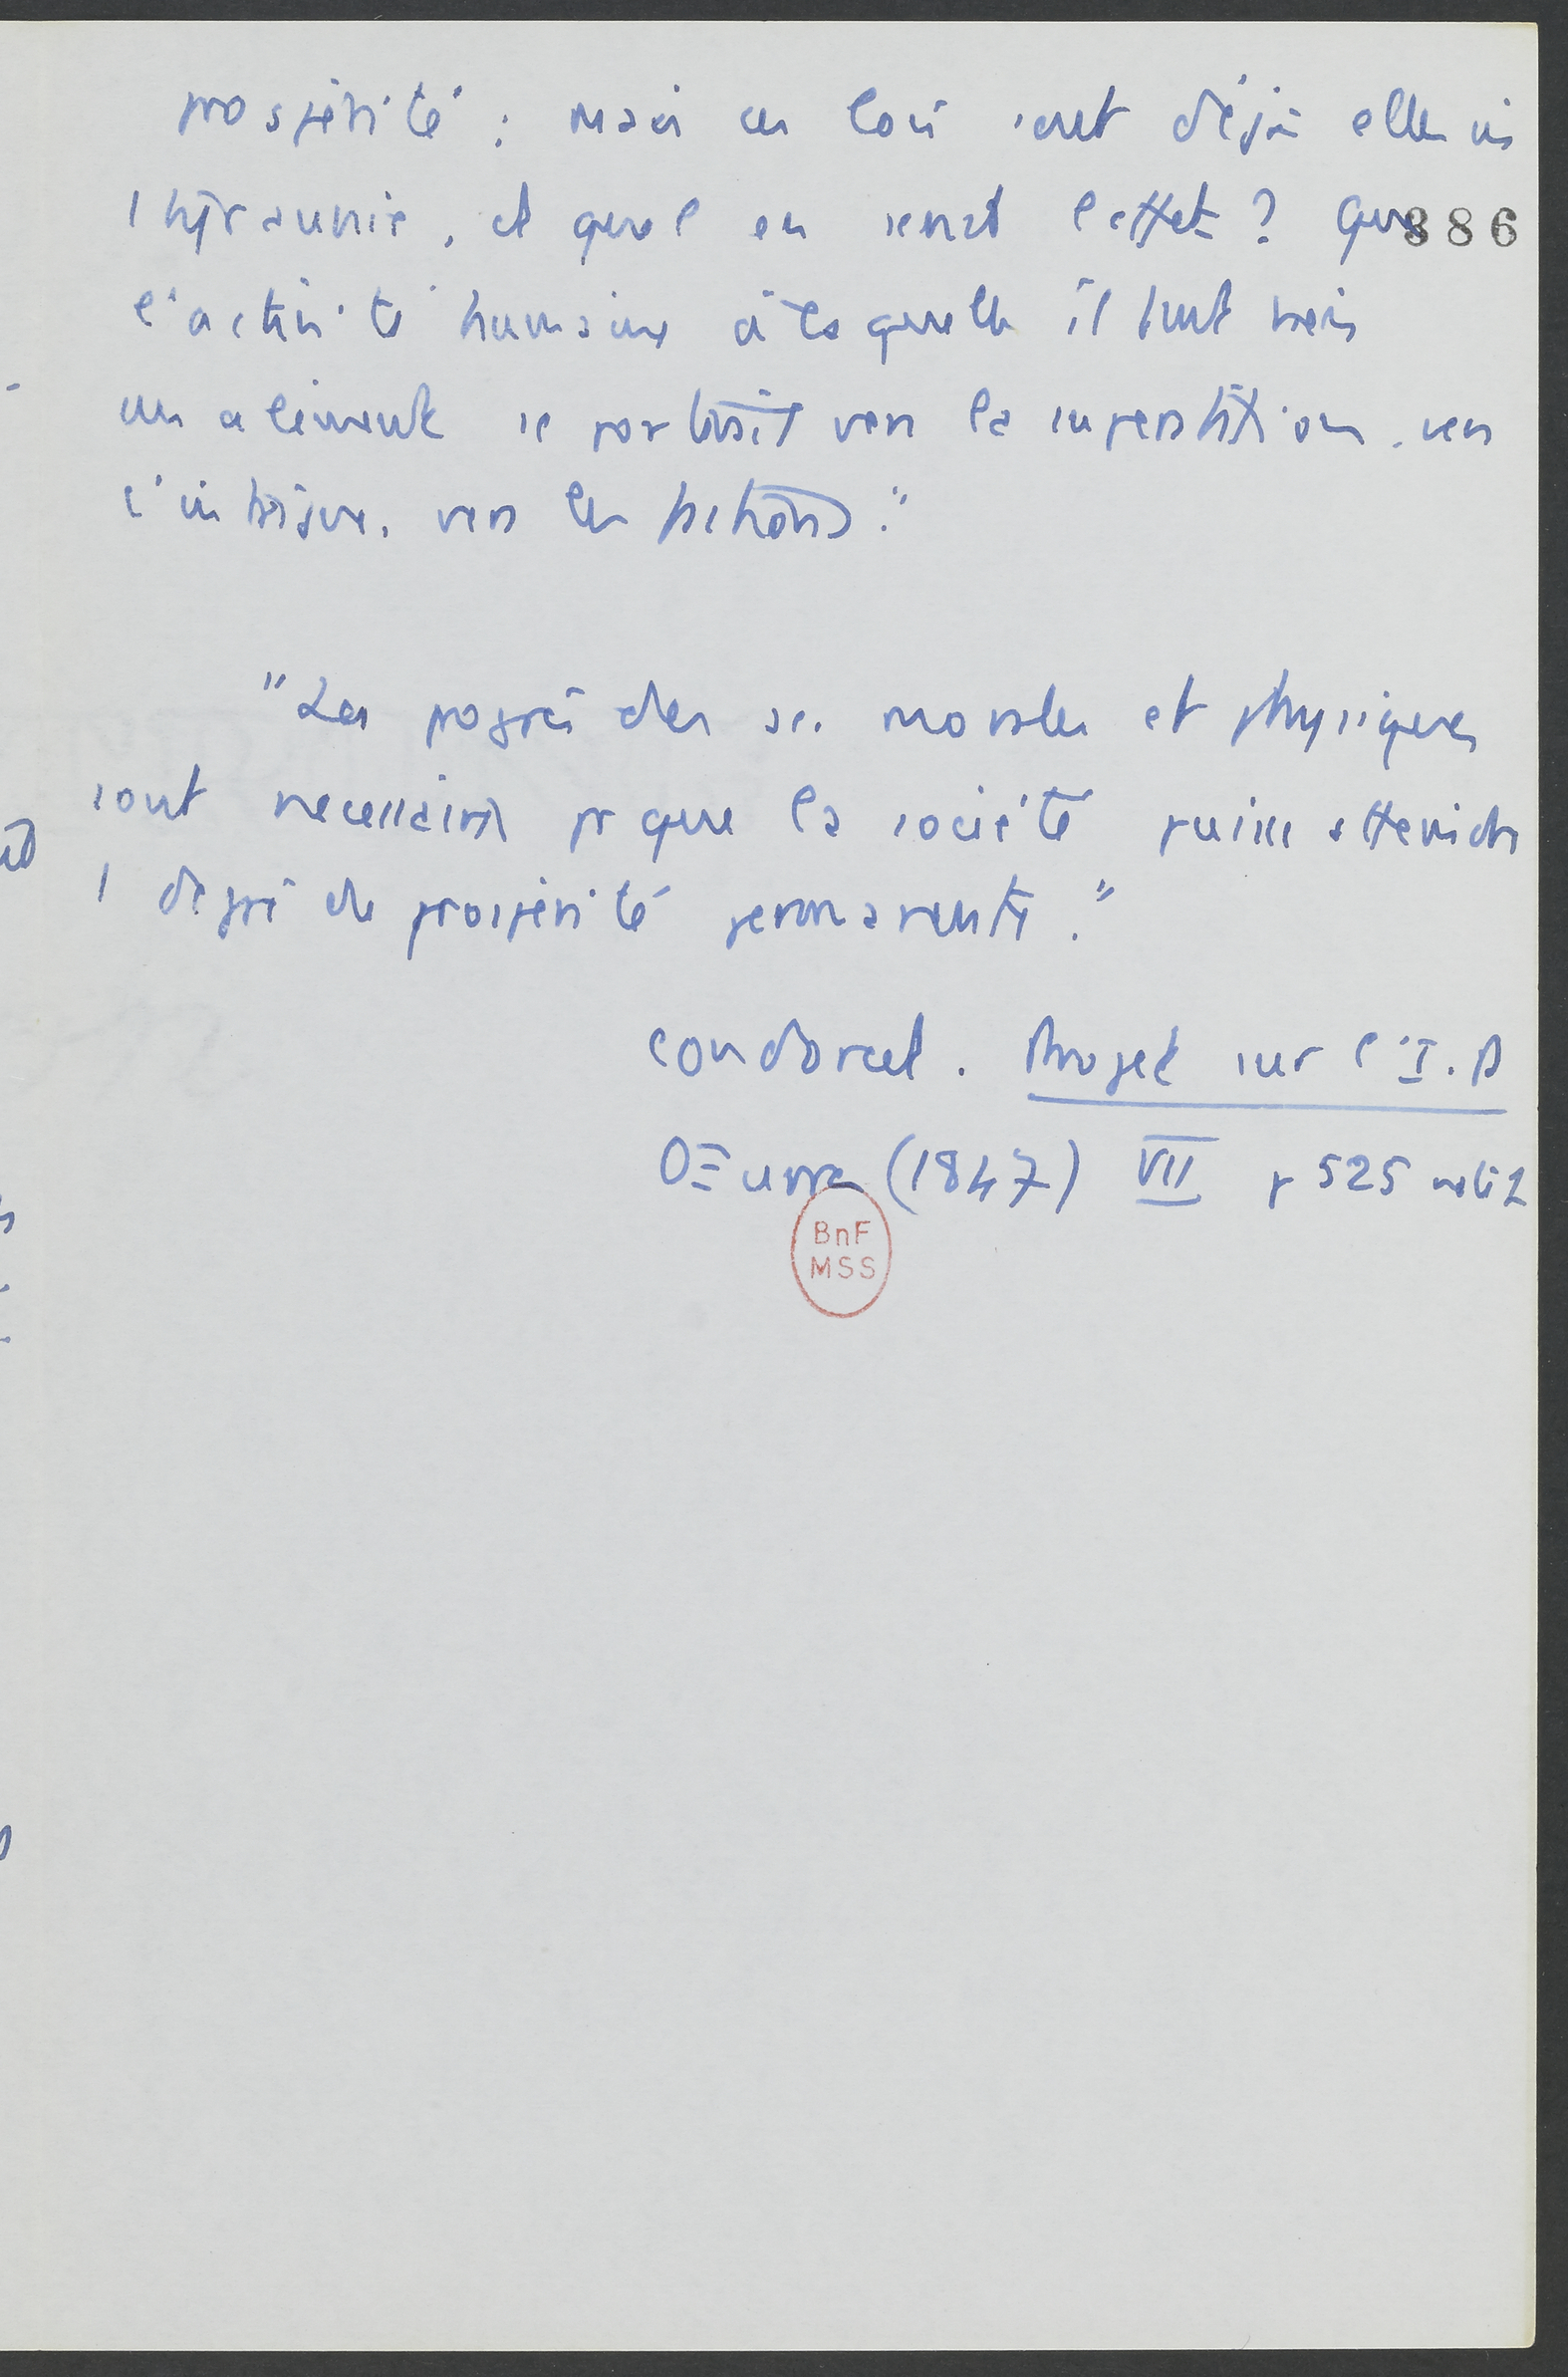 prospérité ; mais ces lois sont déjà elles mêmes
1 tyrannie, et quel en serait l'effet ? Que
886
l'activité humaine à laquelle il faut bien
un aliment se porterait vers la superstition, vers
l'intrigue, vers les factions."
"Les progrès des sc. morales et physiques
sont necessaires pr que la société puisse atteindre
1 degré de prospérité permanente."
Condorcet. Projet sur l'I.P
OEuvres (1847) VII p 525 note 2
BnF
MSS